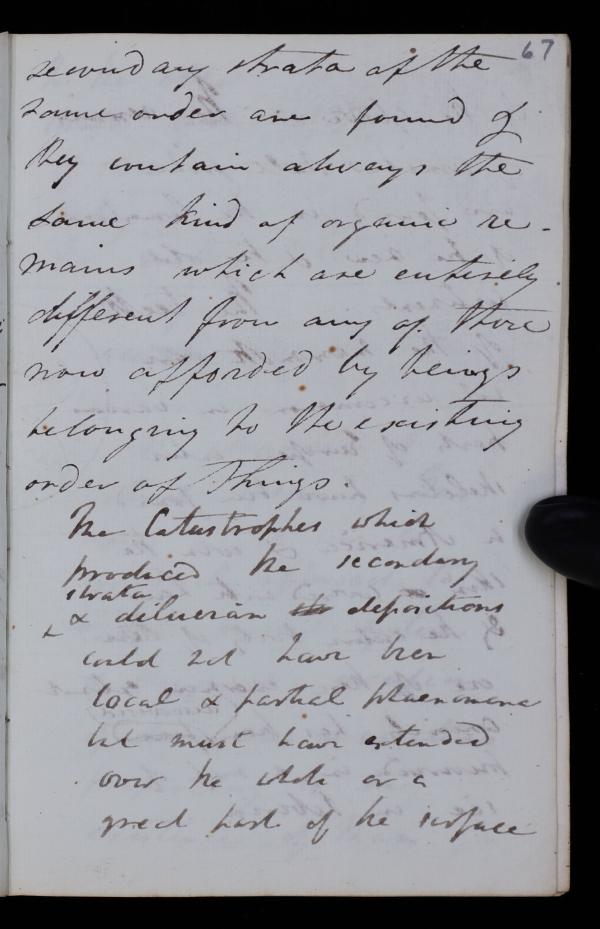 67
secondary strata of the
same order are found &
they contain always the
same kind of organic re-
mains which are entirely
different from any of those
now afforded by beings
belonging to the existing
order of Things.
The Catastrophes which
produced the secondary
strata
& diluvian depositions
could not have been
local & partial phaenomena
but must have extended
over the whole or a
great part of the surface